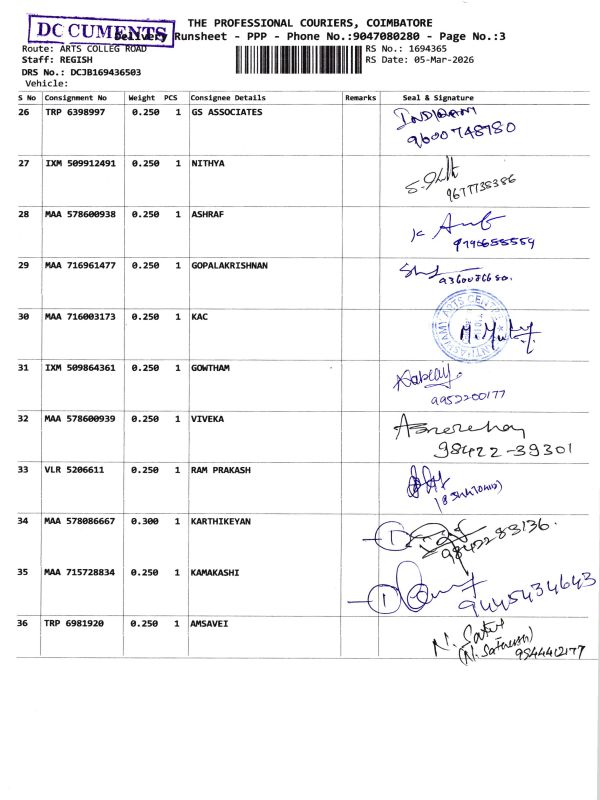 DOCUMENTS
THE PROFESSIONAL COURIERS, COIMBATORE
Delivery Runsheet - PPP - Phone No.:9047080280 - Page No.:3
Route: ARTS COLLEG ROAD
RS No.: 1694365
Staff: REGISH
RS Date: 05-Mar-2026
DRS No.: DCJB169436503
Vehicle:
S No Consignment No Weight PCS Consignee Details Remarks Seal & Signature
26 TRP 6398997 0.250 1 GS ASSOCIATES
9600748780
27 IXM 509912491 0.250 1 NITHYA
9677735386
28 MAA 578600938 0.250 1 ASHRAF
29 MAA 716961477 0.250 1 GOPALAKRISHNAN
30 MAA 716003173 0.250 1 KAC
31 IXM 509864361 0.250 1 GOWTHAM
9952200177
32 MAA 578600939 0.250 1 VIVEKA
98422-39301
33 VLR 5206611 0.250 1 RAM PRAKASH
34 MAA 578086667 0.300 1 KARTHIKEYAN
1 9842283136.
35 MAA 715728834 0.250 1 KAMAKASHI
1 9445434643
36 TRP 6981920 0.250 1 AMSAVEI